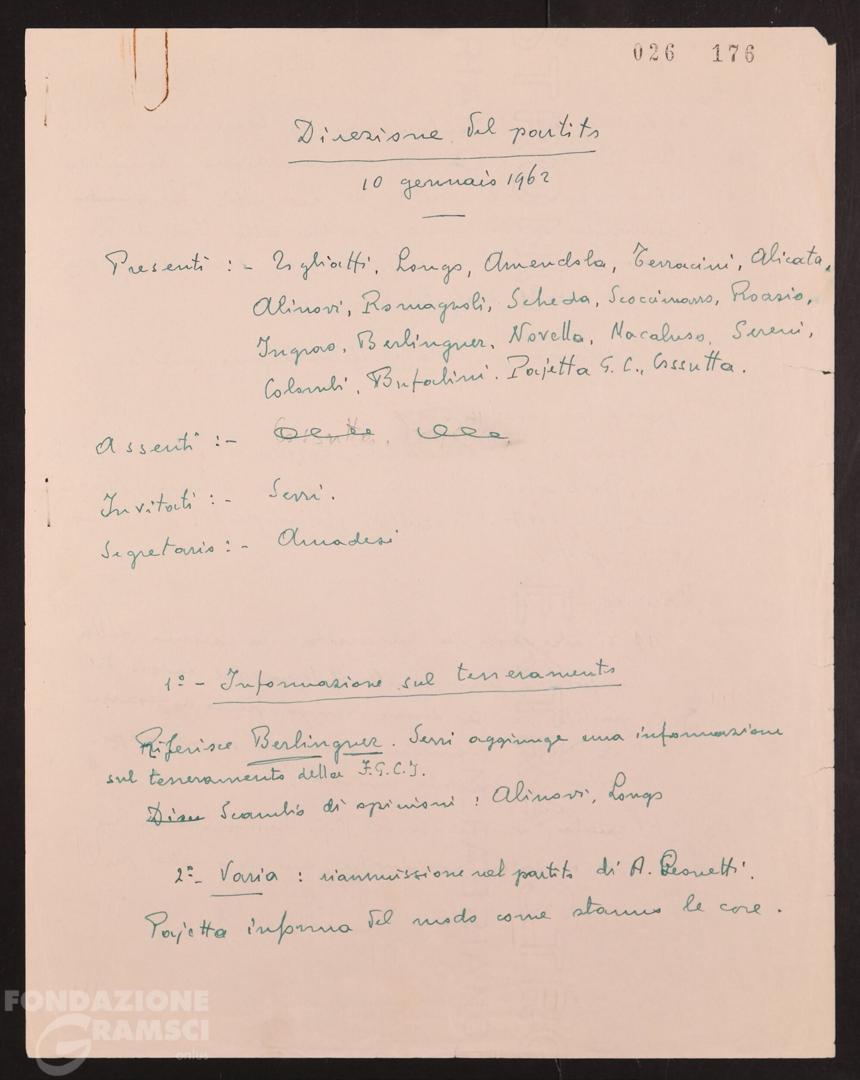 026 176
Direzione del partito
10 gennaio 1962
Presenti :- Togliatti, Longo, Amendola, Terracini, Alicata,
Alinovi, Romagnoli, Scheda, Scoccimarro, Roasio,
Ingrao, Berlinguer, Novella, Macaluso, Sereni,
Colombi, Bufalini. Pajetta G. C., Cossutta.
Assenti :-
Invitati :- Serri.
Segretario :- Amadesi
1º - Informazione sul tesseramento
Riferisce Berlinguer. Serri aggiunge una informazione
sul tesseramento della F.G.C.I.
Disc Scambio di opinioni : Alinovi, Longo
2º- Varia : riammissione nel partito di A. Leonetti.
Pajetta informa del modo come stanno le cose.
FONDAZIONE
GRAMSCI
onlus